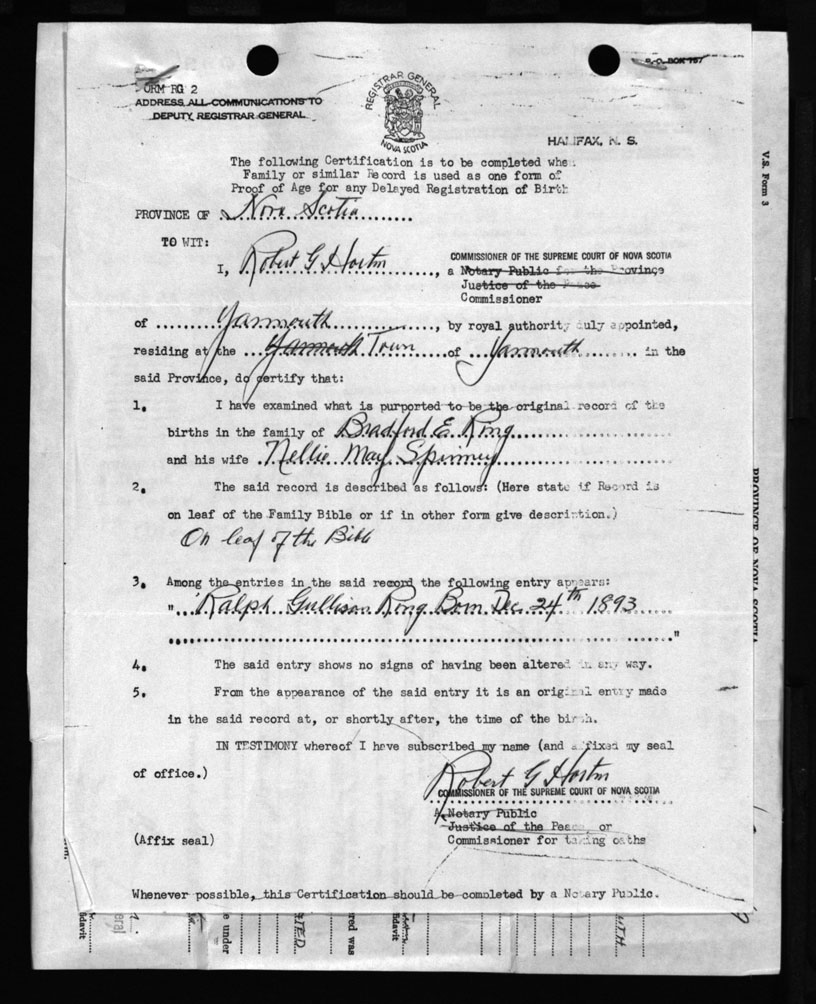 P. O. BOX 157
FORM RG 2
ADDRESS ALL COMMUNICATIONS TO
DEPUTY REGISTRAR GENERAL
REGISTRAR GENERAL
NOVA SCOTIA
HALIFAX, N. S.
The following Certification is to be completed when
Family or similar Record is used as one form of
Proof of Age for any Delayed Registration of Birth
PROVINCE OF Nova Scotia
TO WIT:
COMMISSIONER OF THE SUPREME COURT OF NOVA SCOTIA
I, Robert G Horton, a Notary Public for the Province
Justice of the Peace
Commissioner
of Yarmouth, by royal authority duly appointed,
residing at the Yarmouth Town of Yarmouth in the
said Province, do certify that:
1. I have examined what is purported to be the original record of the
births in the family of Bradford E. Ring
and his wife Nellie May Spinney
2. The said record is described as follows: (Here state if Record is
on leaf of the Family Bible or if in other form give description.)
On leaf of the Bible
3. Among the entries in the said record the following entry appears:
" Ralph Gullison Ring Born Dec. 24th 1893
"
4. The said entry shows no signs of having been altered in any way.
5. From the appearance of the said entry it is an original entry made
in the said record at, or shortly after, the time of the birth.
IN TESTIMONY whereof I have subscribed my name (and affixed my seal
of office.)
Robert G Horton
COMMISSIONER OF THE SUPREME COURT OF NOVA SCOTIA
A Notary Public
Justice of the Peace, or
(Affix seal) Commissioner for taking oaths
Whenever possible, this Certification should be completed by a Notary Public.
V.S. Form 3
PROVINCE OF NOVA SCOTIA
davit
eral
e under
red was
davit